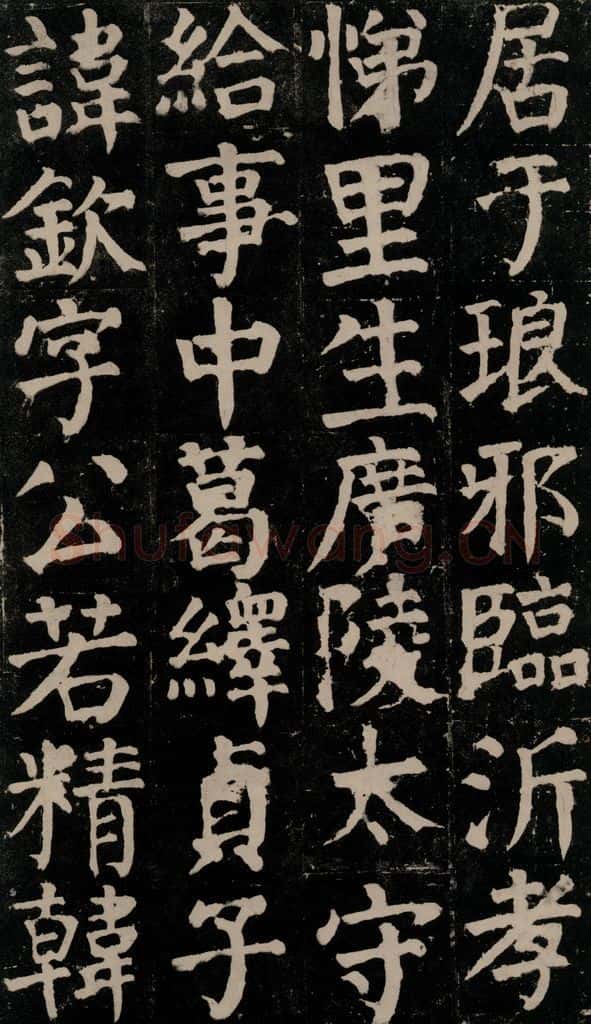 居于琅邪臨沂孝
悌里生廣陵太守
給事中葛繹貞子
諱欽字公若精韓
Shufawang.CN